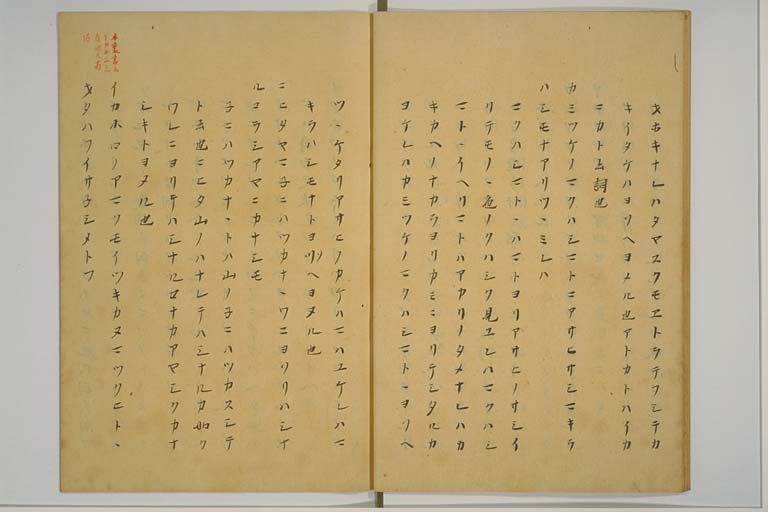 キイタケハヨソヘヨメル也アトカトハイカ
ニカト云詞也
カミツケノマクハシマトニアサヒサシマキラ
ハシモナアリツヽミレハ
マクハシマトヽハマトヨリアサヒノサシイ
リテモノヽ色ノクハシク見ユレハマクハシ
マトヽイヘリマトハアカリノタメナレハカ
キカヘノナカラヨリカミニヨリテシタルカ
ヨケレハカミツケノマクハシマトヽヨソヘ
ツヽケタリアサヒノカケハマハユケレハマ
キラハシモナトヨソヘヨメル也
ニヒタヤマ子ニハツカナヽワニヨソリハシナ
ルコラシアヤニカナシモ
子ニハツカナヽトハ山ノ子ニハツカスシテ
ト云也ニヒタ山ノハナレテハシナルカ如ク
ワレニヨリテハシナルセナカアヤシクカナ
シキトヨメル也
イカホロノアマクモイツキカヌマツクヒトヽ
オタハフイサ子シメトラ